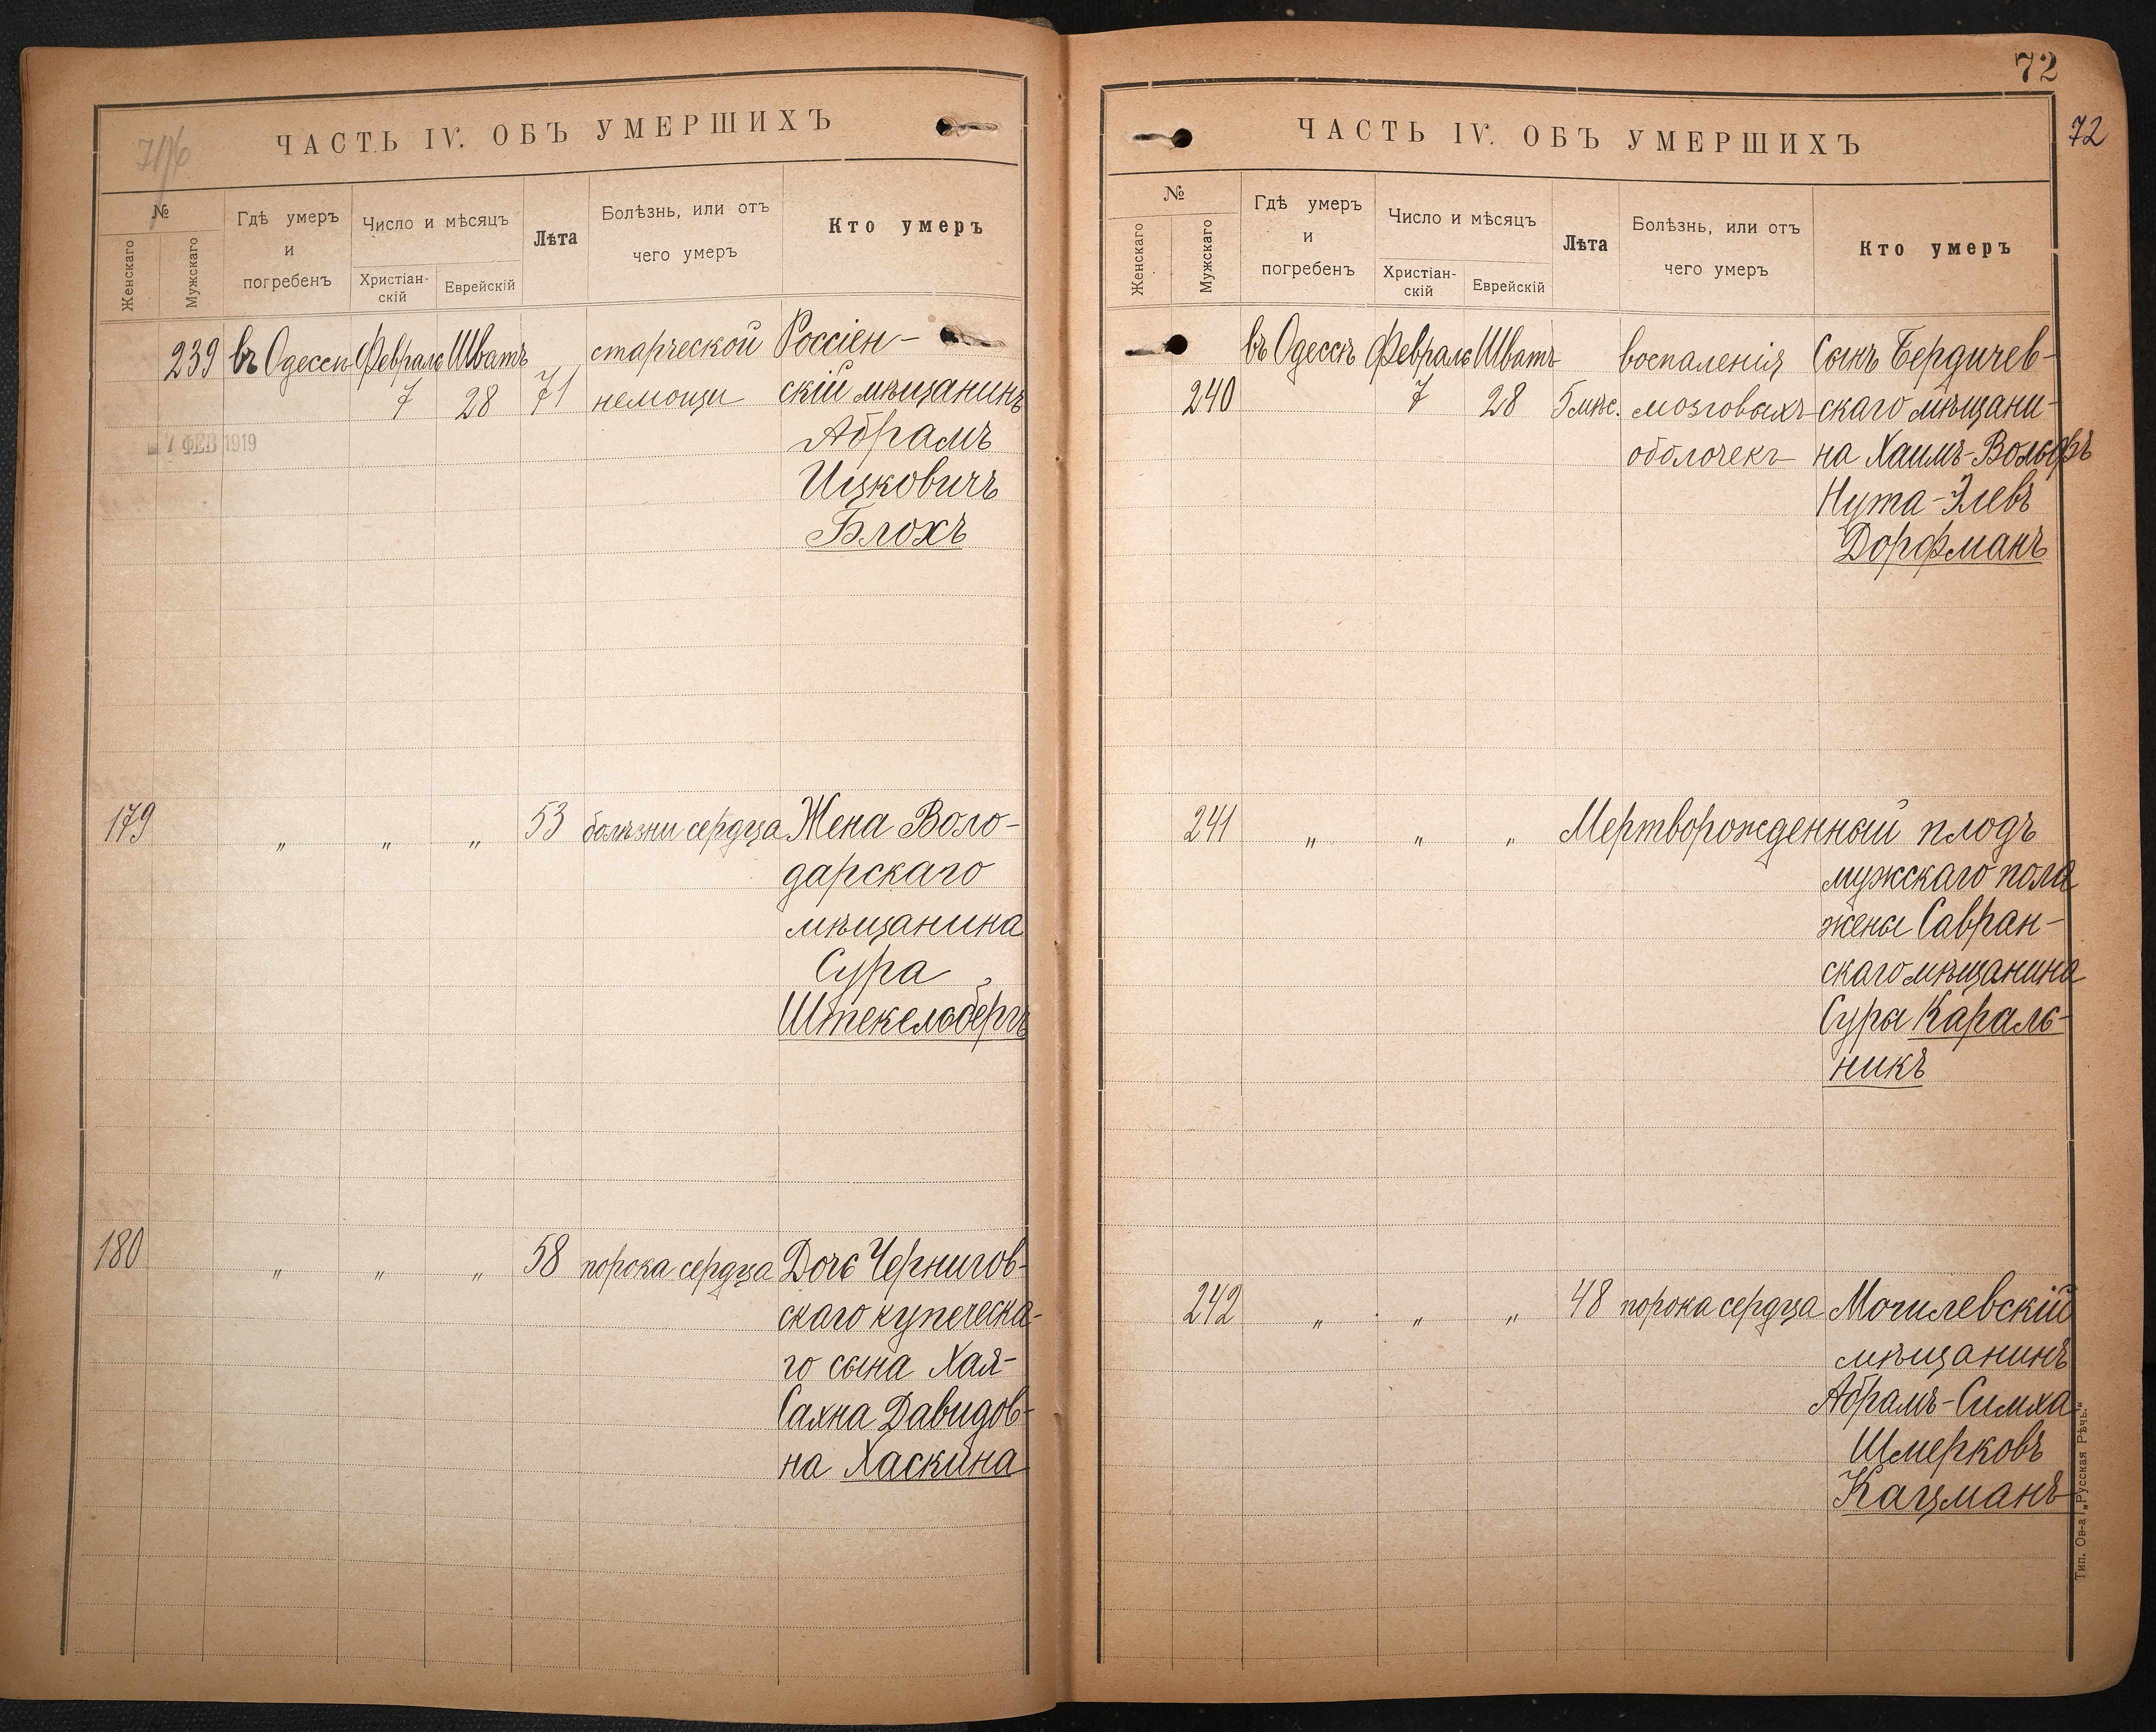 ЧАСТЬ IV. ОБЪ УМЕРШИХЪ
№
Женскаго
Мужскаго
Гдѣ умеръ
и
погребенъ
Число и мѣсяцъ
Христіан-
скій
Еврейскій
Лѣта
Болѣзнь, или отъ
чего умеръ
Кто умеръ
239 въ Одессѣ Февраль Шватъ старческой Россіен-
7 28 71 немощи скій мѣщанинъ
7 ФЕВ 1919
Абрамъ
Ицковичъ
Блохъ
179 „ „ „ 53 болѣзни сердца Жена Воло-
дарскаго
мѣщанина
Сура
Штекельбергъ
180 „ „ „ 58 порока сердца Дочь Чернигов-
скаго купеческа-
го сына Хая-
Сахна Давидов-
на Хаскина
72
72
ЧАСТЬ IV. ОБЪ УМЕРШИХЪ
№
Женскаго
Мужскаго
Гдѣ умеръ
и
погребенъ
Число и мѣсяцъ
Христіан-
скій
Еврейскій
Лѣта
Болѣзнь, или отъ
чего умеръ
Кто умеръ
въ Одессѣ Февраль Шватъ воспаленія Сынъ Бердичев-
240 7 28 5 мѣс. мозговыхъ скаго мѣщани-
оболочекъ на Хаимъ-Вольфъ
Нута-Элевъ
Дорфманъ
241 „ „ „ Мертворожденный плодъ
мужскаго пола
жены Савран-
скаго мѣщанина
Суры Караль-
никъ
242 „ „ „ 48 порока сердца Могилевскій
мѣщанинъ
Абрамъ-Симха
Шмерковъ
Кацманъ
Тип. Ов-а „Русская Рѣчь.“